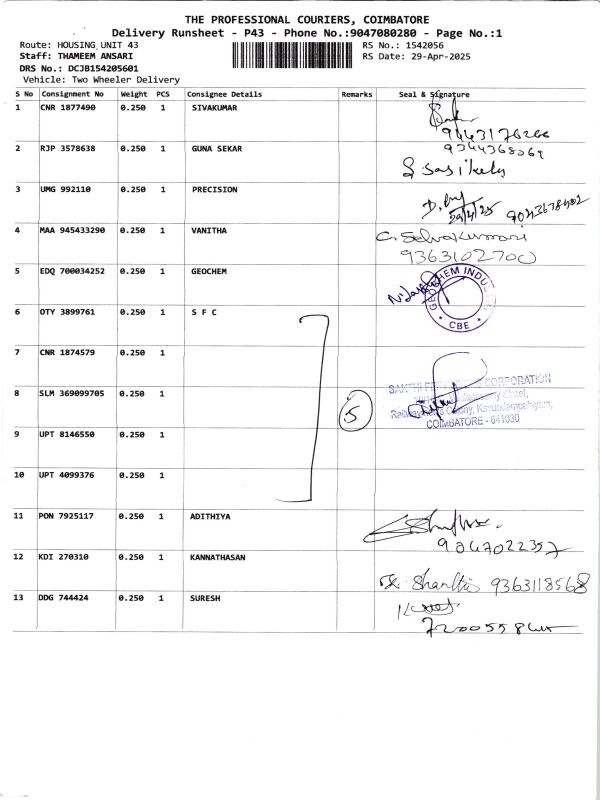 THE PROFESSIONAL COURIERS, COIMBATORE
Delivery Runsheet - P43 - Phone No.:9047080280 - Page No.:1
Route: HOUSING UNIT 43 RS No.: 1542056
Staff: THAMEEM ANSARI RS Date: 29-Apr-2025
DRS No.: DCJB154205601
Vehicle: Two Wheeler Delivery
S No Consignment No Weight PCS Consignee Details Remarks Seal & Signature
1 CNR 1877490 0.250 1 SIVAKUMAR
2 RJP 3578638 0.250 1 GUNA SEKAR
3 UMG 992110 0.250 1 PRECISION
29/4/25
4 MAA 945433290 0.250 1 VANITHA
C. Selvakumari
9363102700
5 EDQ 700034252 0.250 1 GEOCHEM
GEOCHEM INDUS
CBE
6 OTY 3899761 0.250 1 S F C
7 CNR 1874579 0.250 1
8 SLM 369099705 0.250 1 5
CORPORATION
Colony, Kavundampalayam,
COIMBATORE - 641030
9 UPT 8146550 0.250 1
10 UPT 4099376 0.250 1
11 PON 7925117 0.250 1 ADITHIYA
9047022357
12 KDI 270310 0.250 1 KANNATHASAN
9363118568
13 DDG 744424 0.250 1 SURESH